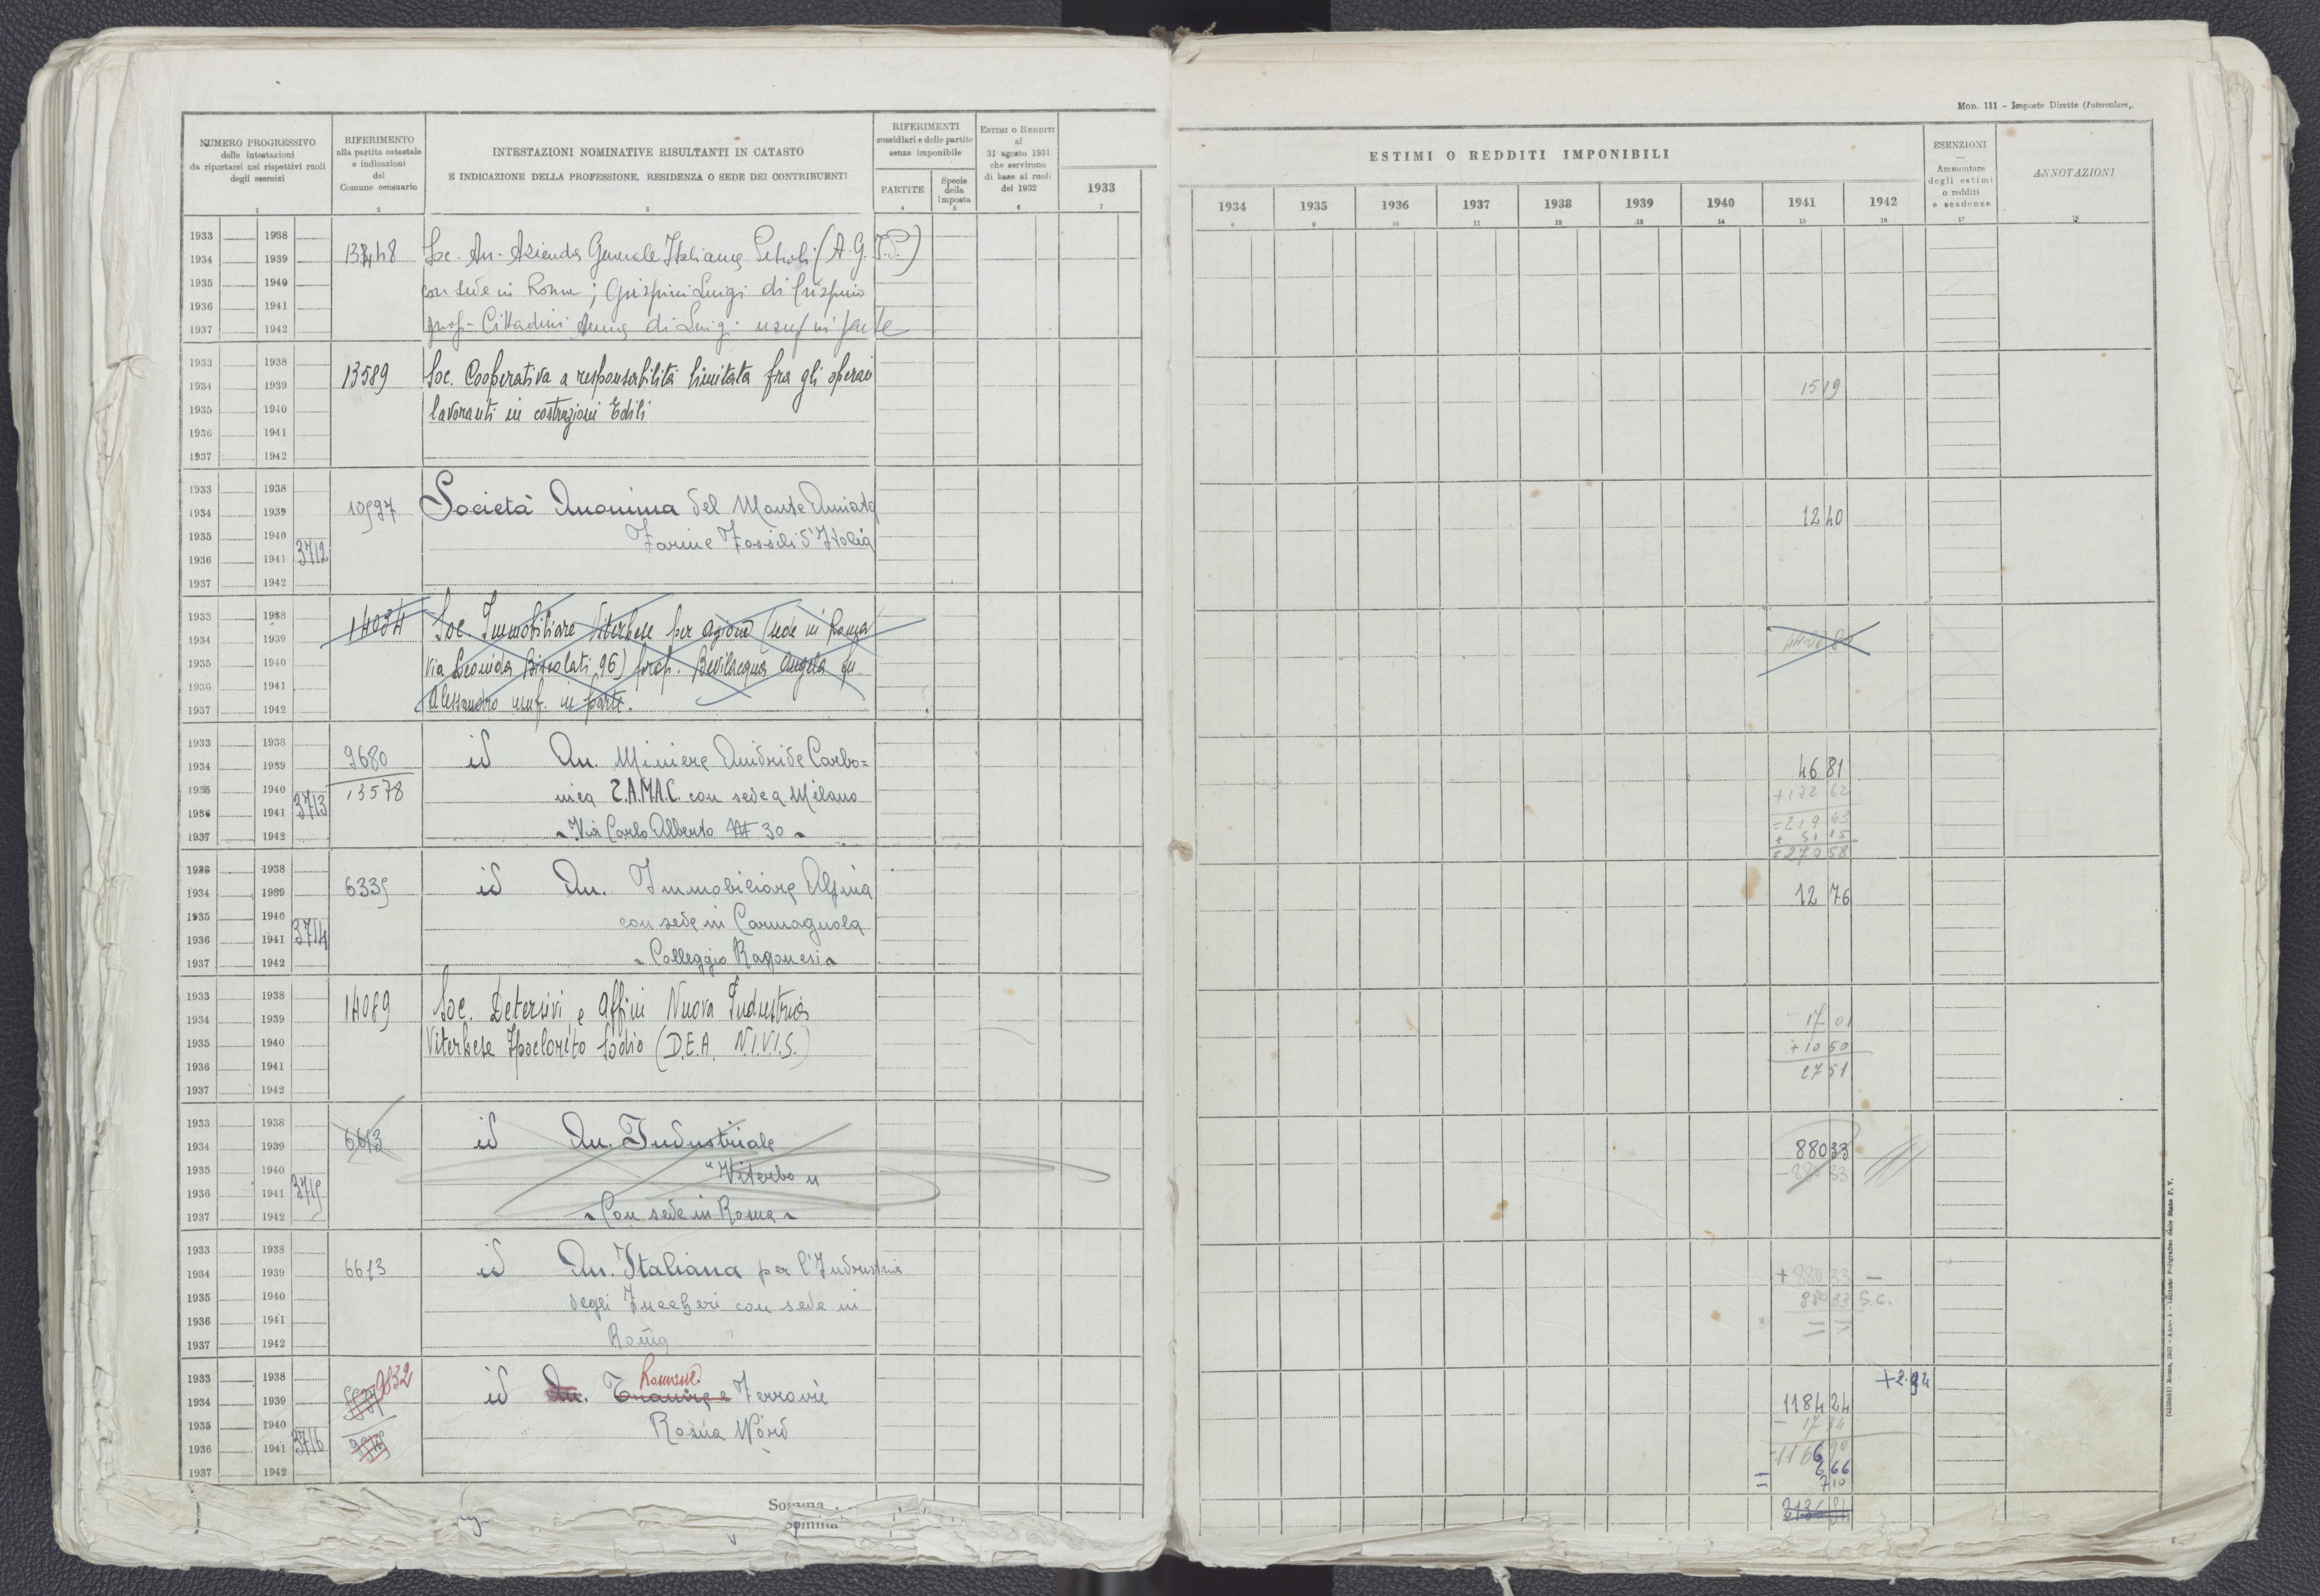 Mod. 111 - Imposte Dirette (Intercalare)
NUMERO PROGRESSIVO
delle intestazioni
da riportarsi nei rispettivi ruoli
degli esercizi
RIFERIMENTO
alla partita catastale
e indicazioni
del
Comune censuario
INTESTAZIONI NOMINATIVE RISULTANTI IN CATASTO
E INDICAZIONE DELLA PROFESSIONE, RESIDENZA O SEDE DEI CONTRIBUENTI
RIFERIMENTI
sussidiari e delle partite
senza imponibile
PARTITE
Specie
della
Imposta
ESTIMI O REDDITI
al
31 agosto 1931
che servirono
di base ai ruoli
del 1932
1933
ESTIMI O REDDITI IMPONIBILI
1934 1935 1936 1937 1938 1939 1940 1941 1942
ESENZIONI
—
Ammontare
degli estimi
o redditi
e scadenze
ANNOTAZIONI
1 2 3 4 5 6 7 8 9 10 11 12 13 14 15 16 17 18
1933 1938
1934 1939 13448 Soc. An. Azienda Generale Italiana Petroli (A.G.I.P.)
1935 1940 con sede in Roma; Grispini Luigi di Crispino
1936 1941
1937 1942 prop- Cittadini di Luigi usuf in parte
1933 1938
1934 1939 13589 Soc. Cooperativa a responsabilità limitata fra gli operai 15 19
1935 1940 lavoranti in costruzioni Edili
1936 1941
1937 1942
1933 1938
1934 1939 10597 Società Anonima del Monte Amiata 12 40
1935 1940 Farine Fossili d'Italia
1936 1941 3712
1937 1942
1933 1938
1934 1939 14034 Soc. Immobiliare Viterbese per azioni (sede in Roma
1935 1940 Via Leonida Bissolati 96) prop. Bevilacqua Angela fu
1936 1941
1937 1942 Alessandro usuf. in parte.
1933 1938
1934 1939 9680 id An. Miniere Anidride Carbo= 46 81
1935 1940 13578 nica S.A.M.A.C. con sede a Milano +172 62
1936 1941 3713 =219 43
1937 1942 Via Carlo Alberto 30 + 51 15
=270 58
1933 1938
1934 1939 6335 id An. Immobiliare Alfina 12 76
1935 1940 con sede in Carmagnola
1936 1941 3714
1937 1942 Colleggio Ragonesi
1933 1938
1934 1939 14089 Soc. Detersivi e Affini Nuova Industria 17 01
1935 1940 Viterbese Ipoclorito Sodio (D.E.A. N.I.V.I.S.) +10 50
1936 1941 27 51
1937 1942
1933 1938
1934 1939 6613 id An. Industriale 880 33
1935 1940 "Viterbo" -880 33
1936 1941 3715
1937 1942 Con sede in Roma
1933 1938
1934 1939 6613 id An. Italiana per l'Industria +880 33 —
1935 1940 degli Zuccheri con sede in 880 33 S.C.
1936 1941 = =
1937 1942 Roma
1933 1938 9832 Romana +2.94
1934 1939 id An. Tramvie e Ferrovie 1184 24
1935 1940 Roma Nord - 17 34
1936 1941 3716 =1166 90
1937 1942 2 66
= 7 10
Somma
Somma